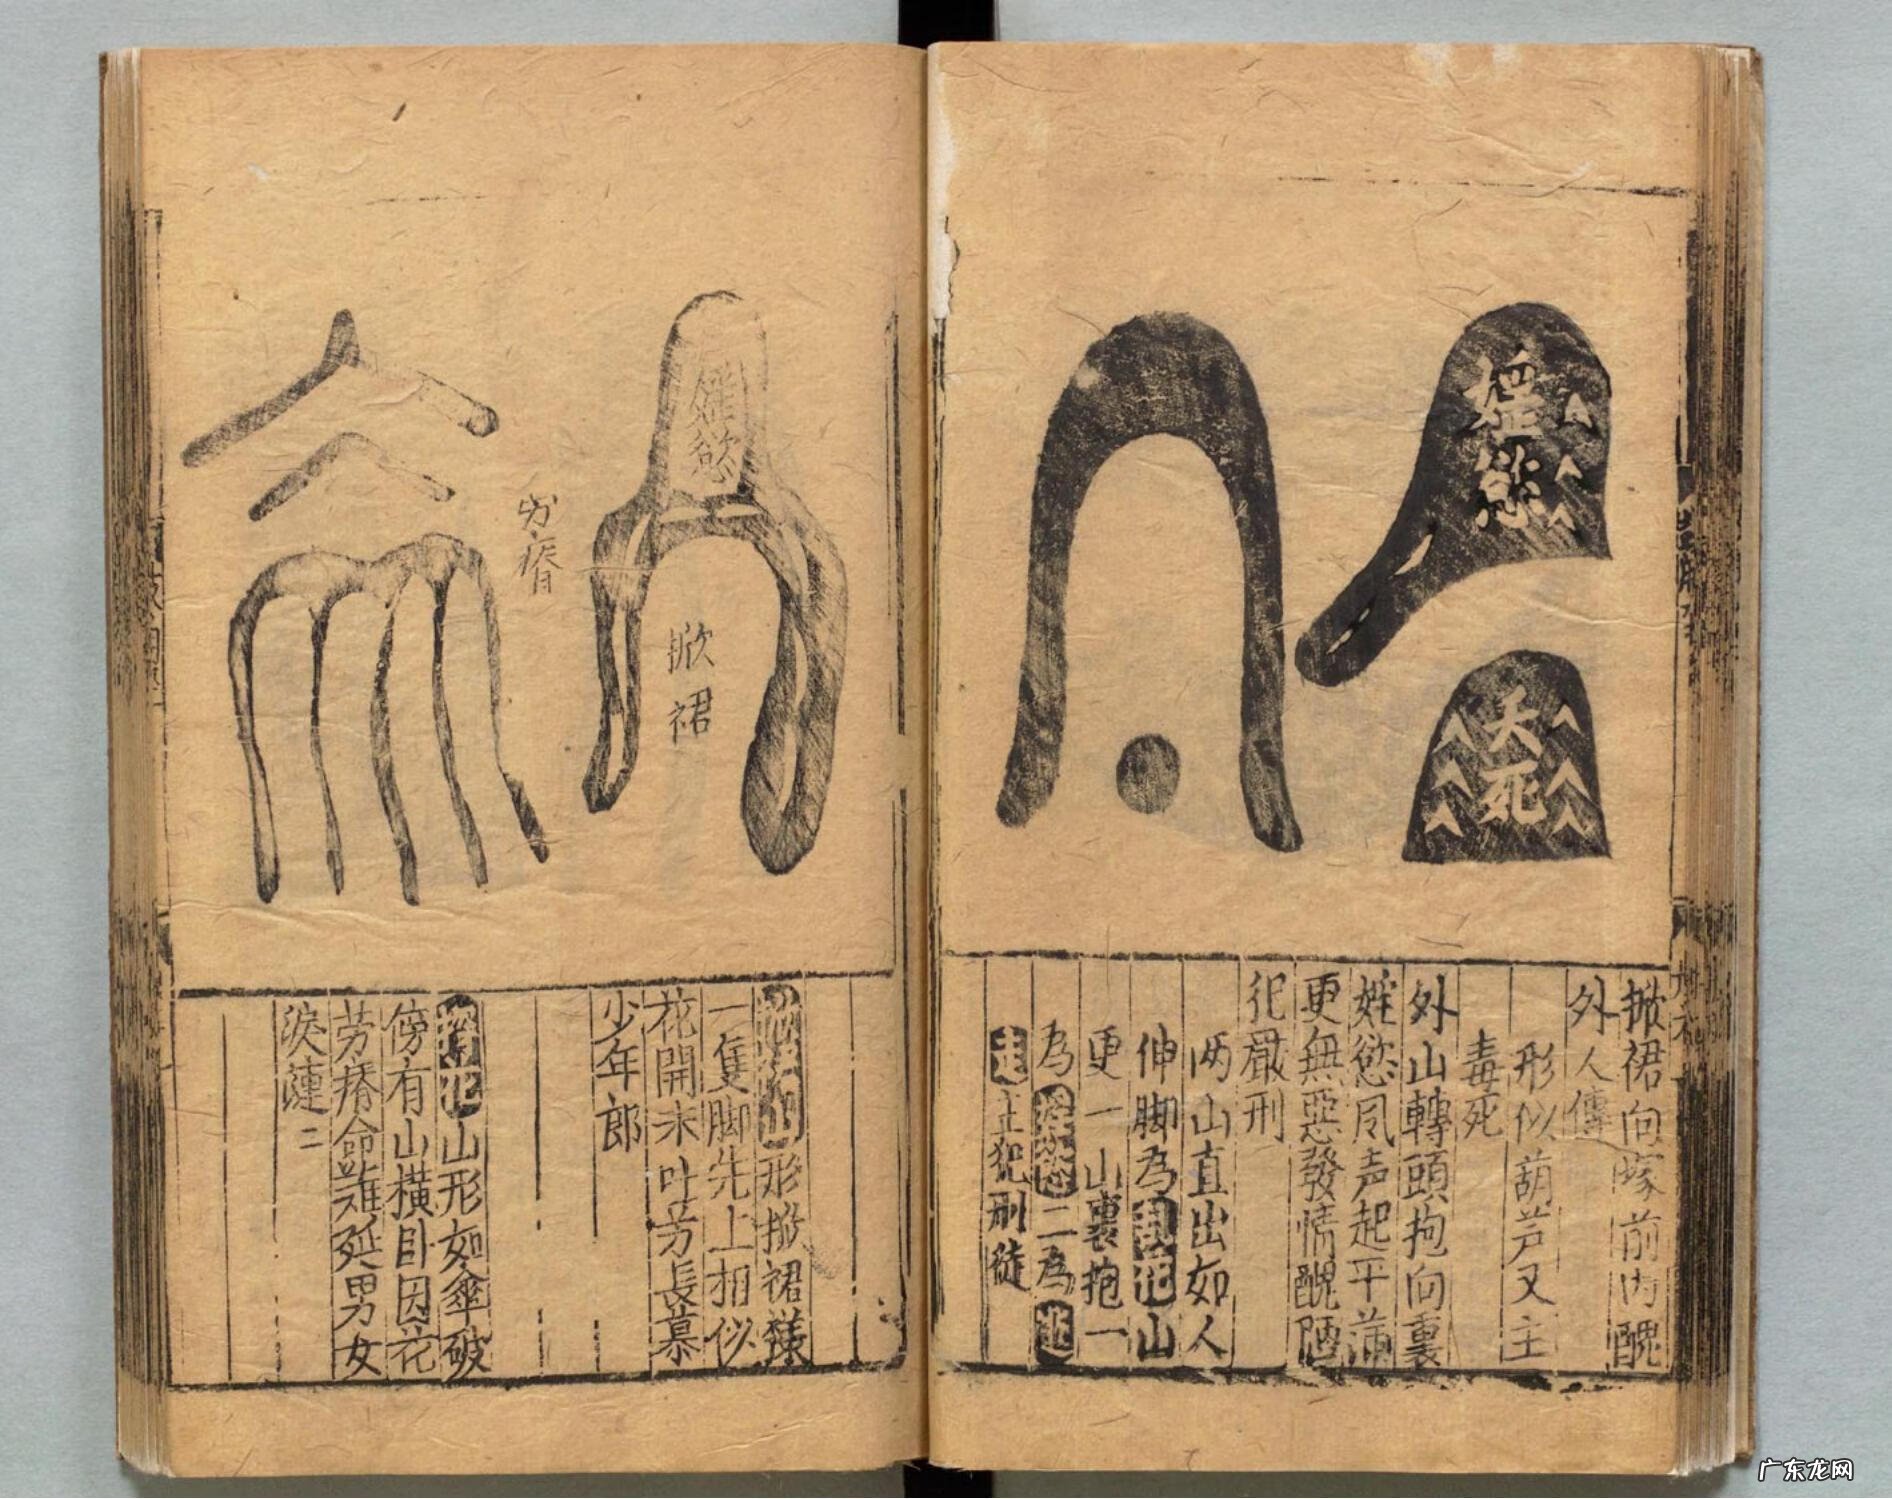 婬慾
夭死
掀裙向塚前內醜
外人傳
形似葫芦又主
毒死
外山轉頭抱向裏
婬慾風声起平
更無惡發情醜陋
犯嚴刑
两山直出如人
伸脚為花山
更一山裏抱一
為婬慾二為
正犯刑徒
婬慾
掀裙
劳瘠
形掀裙樣
一隻脚先上相似
花開未叶芳長慕
少年郎
花山形如傘破
傍有山横卧因花
劳瘠命难延男女
淚漣二
广东龙网